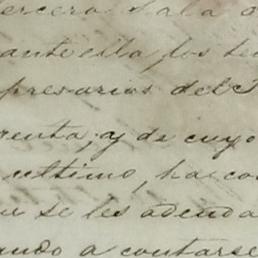 ercera Sala
ante ella, los
presarios del T
renta, y de cuyo
ultimo, ha co
se les adeuda
ando a contarse